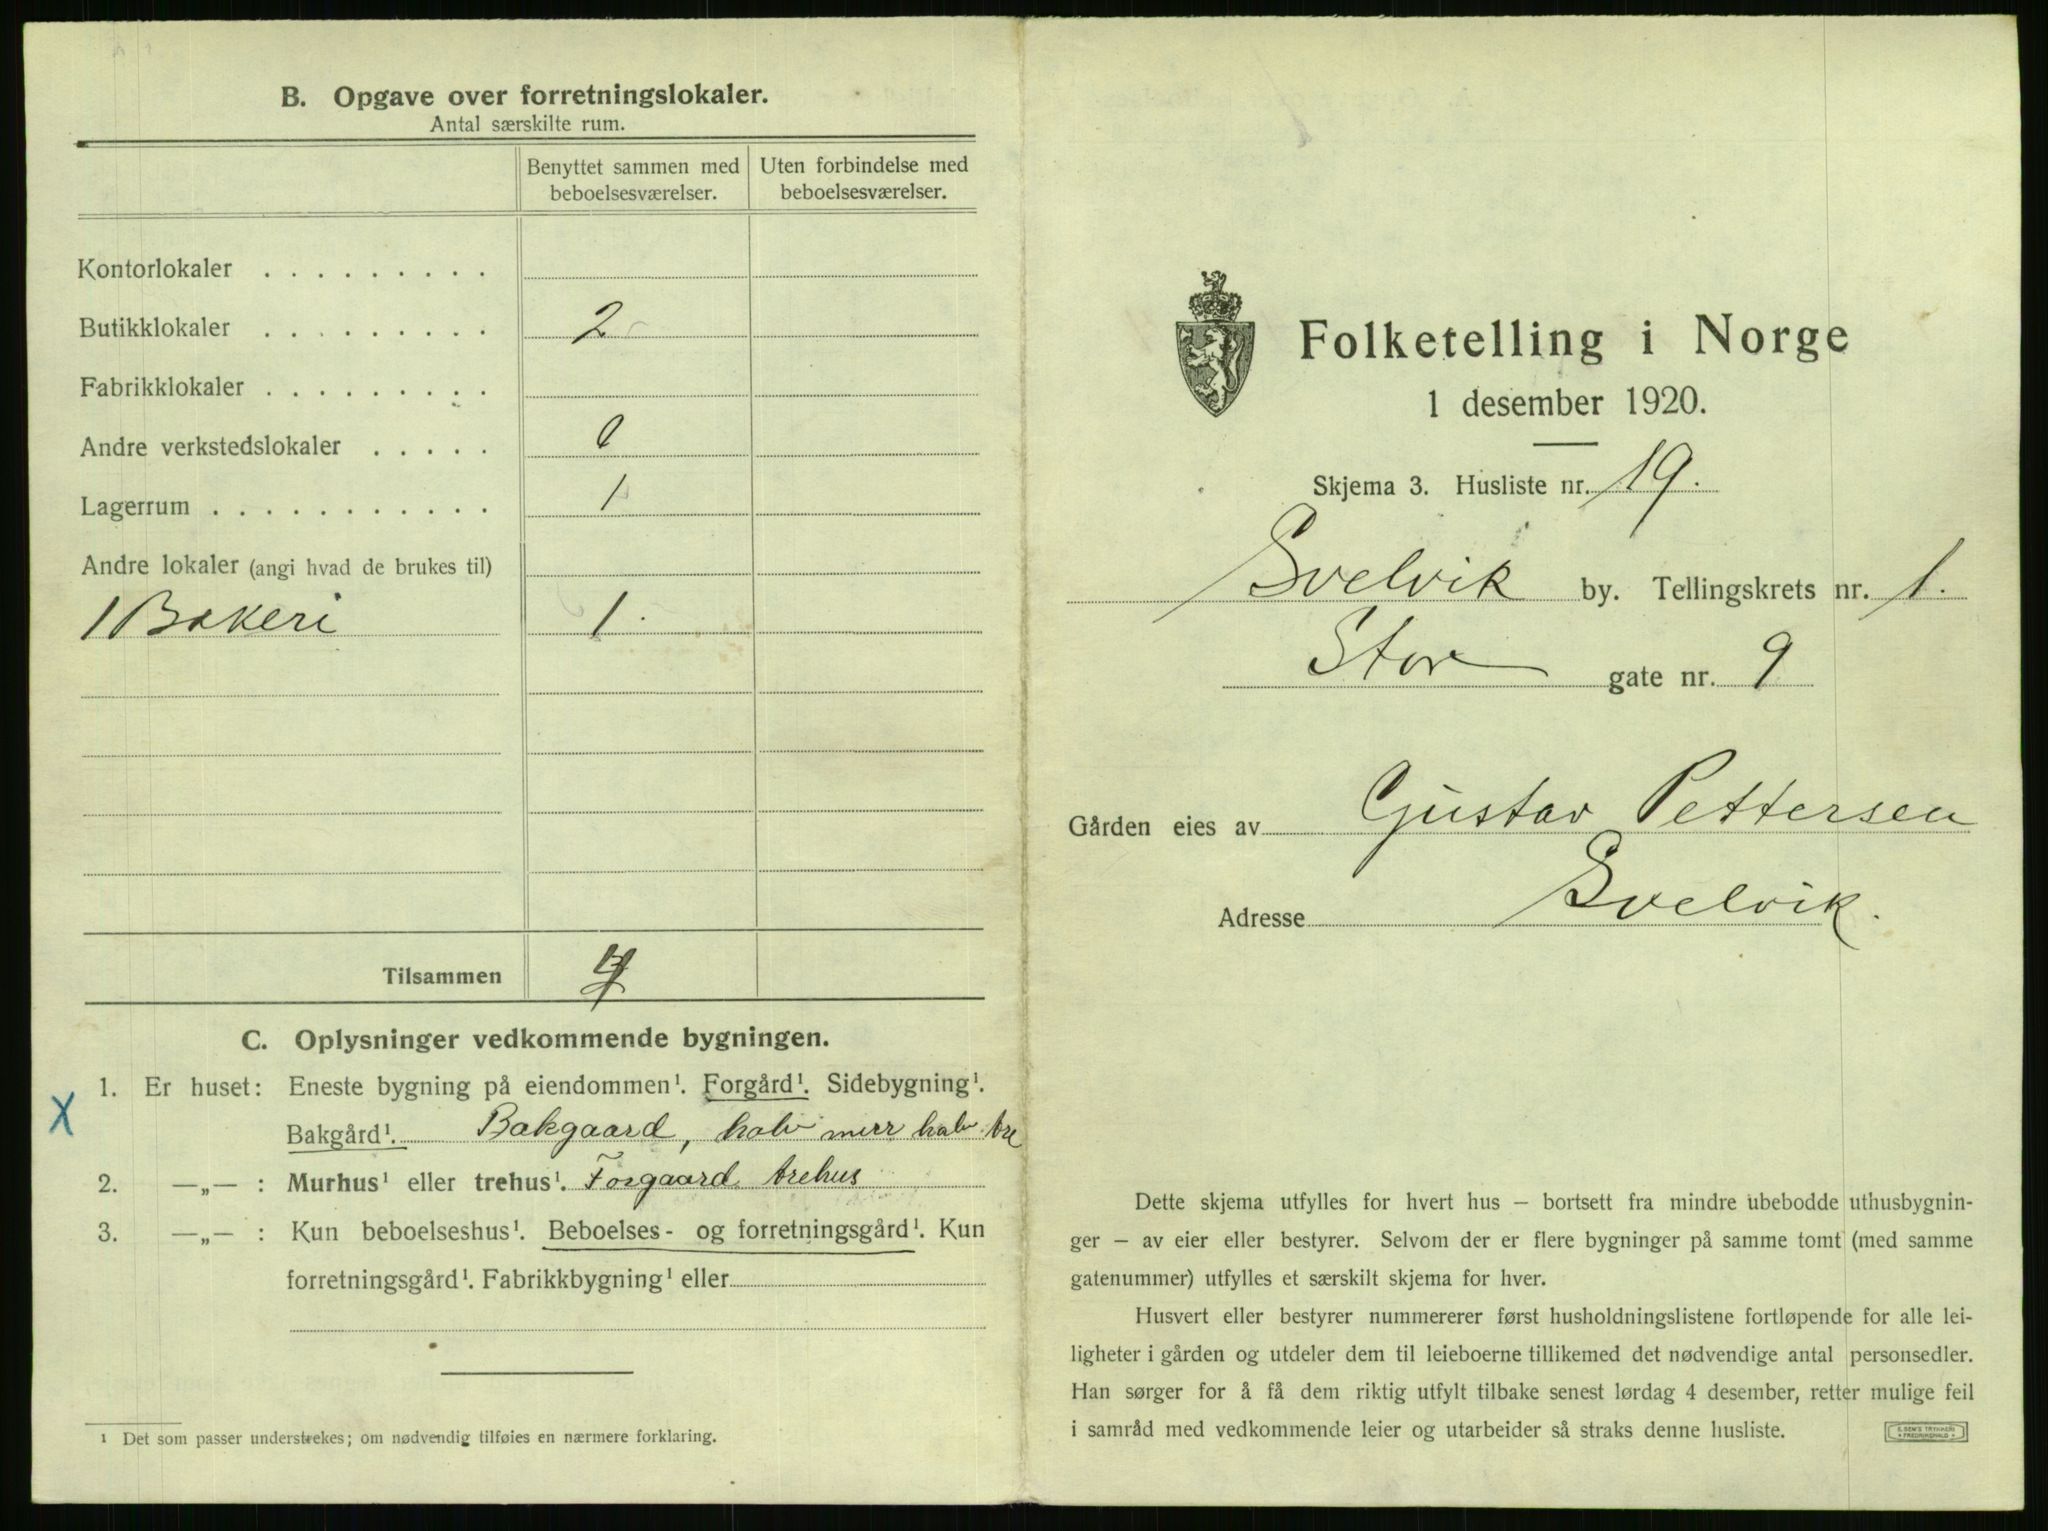 B. Opgave over forretningslokaler.
Antal særskilte rum.
Benyttet sammen med beboelsesværelser.
Uten forbindelse med beboelsesværelser.
Kontorlokaler . . . . . . . . .
Butikklokaler . . . . . . . . . 2
Fabrikklokaler . . . . . . . . .
Andre verkstedslokaler . . . . . 0
Lagerrum . . . . . . . . . . . 1
Andre lokaler (angi hvad de brukes til)
1 Bakeri 1.
Tilsammen 4
C. Oplysninger vedkommende bygningen.
1. Er huset: Eneste bygning på eiendommen¹. Forgård¹. Sidebygning¹.
X
Bakgård¹. Bakgaard, halv murr halv tre
2. —„— : Murhus¹ eller trehus¹. Forgaard trehus
3. —„— : Kun beboelseshus¹. Beboelses- og forretningsgård¹. Kun
forretningsgård¹. Fabrikkbygning¹ eller
¹ Det som passer understrekes; om nødvendig tilføies en nærmere forklaring.
Folketelling i Norge
1 desember 1920.
Skjema 3. Husliste nr. 19.
Svelvik by. Tellingskrets nr. 1.
Stor gate nr. 9
Gården eies av Gustav Pettersen
Adresse Svelvik.
Dette skjema utfylles for hvert hus – bortsett fra mindre ubebodde uthusbygnin-
ger – av eier eller bestyrer. Selvom der er flere bygninger på samme tomt (med samme
gatenummer) utfylles et særskilt skjema for hver.
Husvert eller bestyrer nummererer først husholdningslistene fortløpende for alle lei-
ligheter i gården og utdeler dem til leieboerne tillikemed det nødvendige antal personsedler.
Han sørger for å få dem riktig utfylt tilbake senest lørdag 4 desember, retter mulige feil
i samråd med vedkommende leier og utarbeider så straks denne husliste.
E. SEM'S TRYKKERI
FREDRIKSHALD